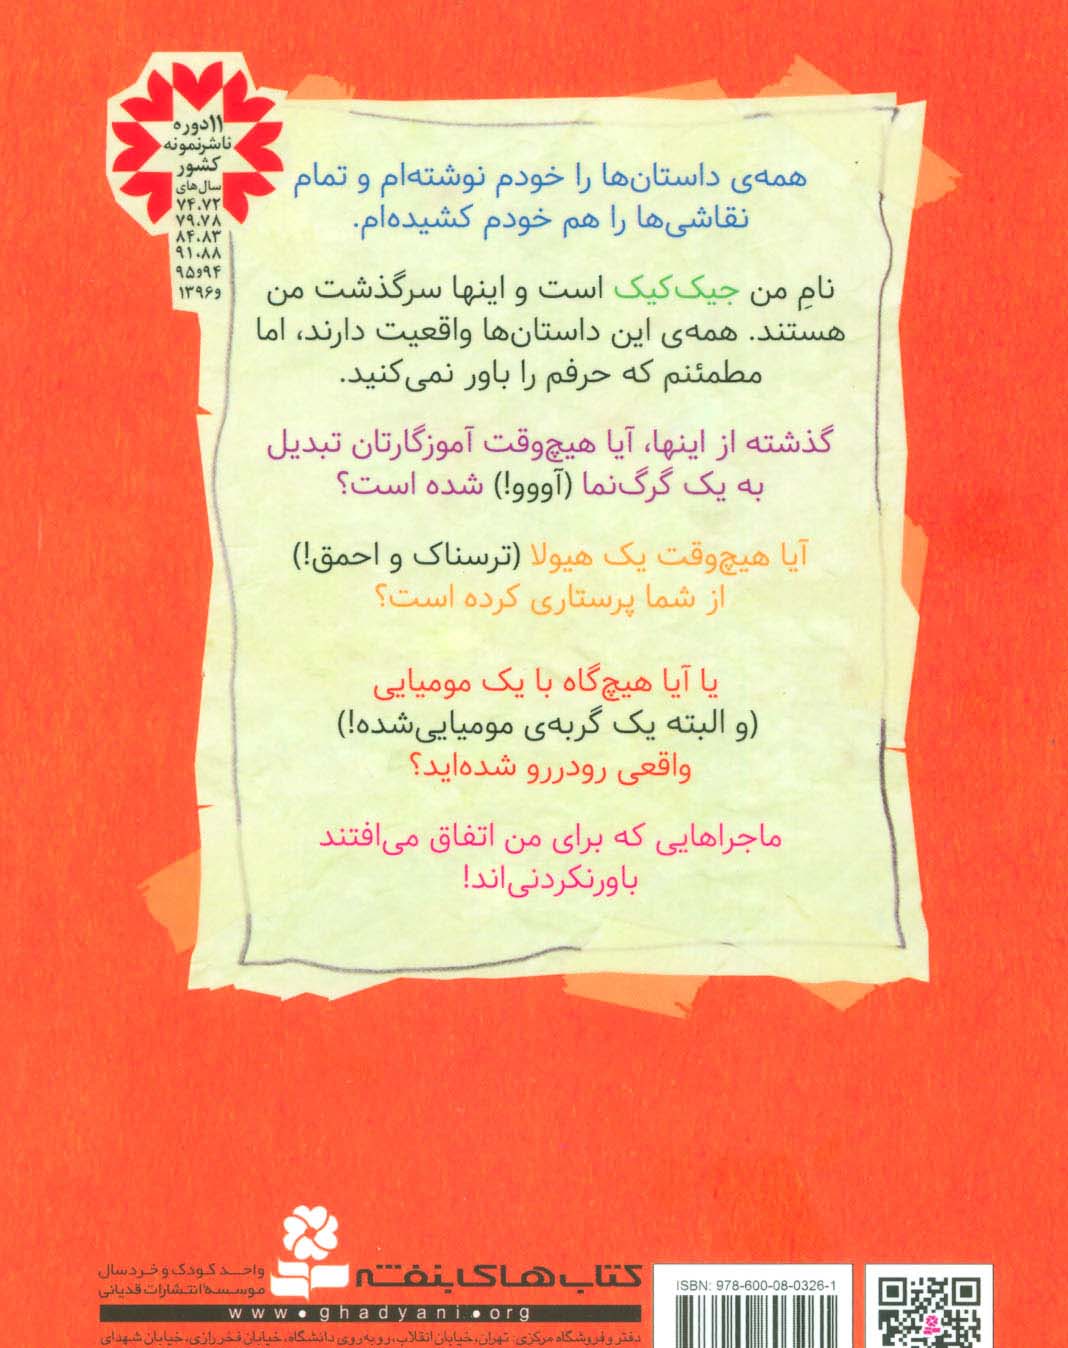 ۱۱دوره
ناشرنمونه
کشور
سال‌های
۷۴،۷۲
۷۹،۷۸
۸۴،۸۳
۹۱،۸۸
۹۵و۹۴
و۱۳۹۶
همه‌ی داستان‌ها را خودم نوشته‌ام و تمام
نقاشی‌ها را هم خودم کشیده‌ام.
نامِ من جیک‌کیک است و اینها سرگذشت من
هستند. همه‌ی این داستان‌ها واقعیت دارند، اما
مطمئنم که حرفم را باور نمی‌کنید.
گذشته از اینها، آیا هیچ‌وقت آموزگارتان تبدیل
به یک گرگ‌نما (آووو!) شده است؟
آیا هیچ‌وقت یک هیولا (ترسناک و احمق!)
از شما پرستاری کرده است؟
یا آیا هیچ‌گاه با یک مومیایی
(و البته یک گربه‌ی مومیایی‌شده!)
واقعی رودررو شده‌اید؟
ماجراهایی که برای من اتفاق می‌افتند
باورنکردنی‌اند!
کتاب‌های بنفشه
واحد کودک و خردسال
موسسه انتشارات قدیانی
www.ghadyani.org
دفتر و فروشگاه مرکزی: تهران، خیابان انقلاب، روبه‌روی دانشگاه، خیابان فخر رازی، خیابان شهدای
ISBN: 978-600-08-0326-1